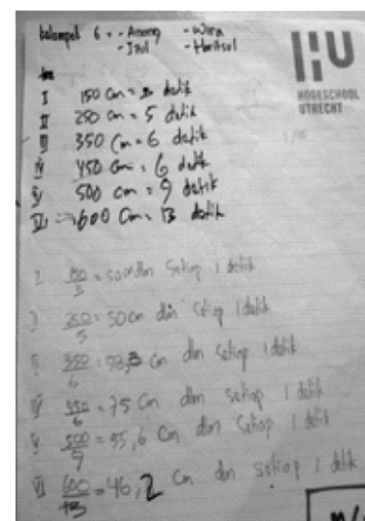 kelompok 6 : - Anang - Wira
- Jául - Haritsul
HOGESCHOOL
UTRECHT
I 150 Cm = 3 detik
II 250 Cm = 5 detik
III 350 Cm = 6 detik
IV 450 Cm = 6 detik
V 500 cm = 9 detik
VI 600 Cm = 13 detik
150/3 = 50 cm dlm Setiap 1 detik
250/5 = 50 Cm dlm setiap 1 detik
350/6 = 58,3 Cm dlm setiap 1 detik
IV 450/6 = 75 Cm dlm setiap 1 detik
V 500/9 = 55,6 Cm dlm Setiap 1 detik
VI 600/13 = 46,2 Cm dlm setiap 1 detik